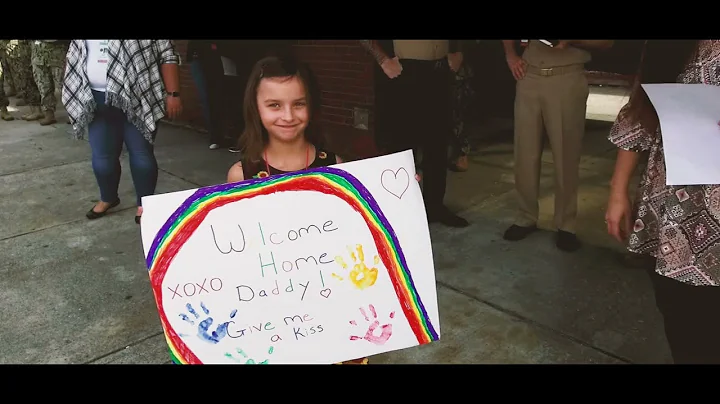 Welcome
Home
XOXO
Daddy!
Give me
a Kiss